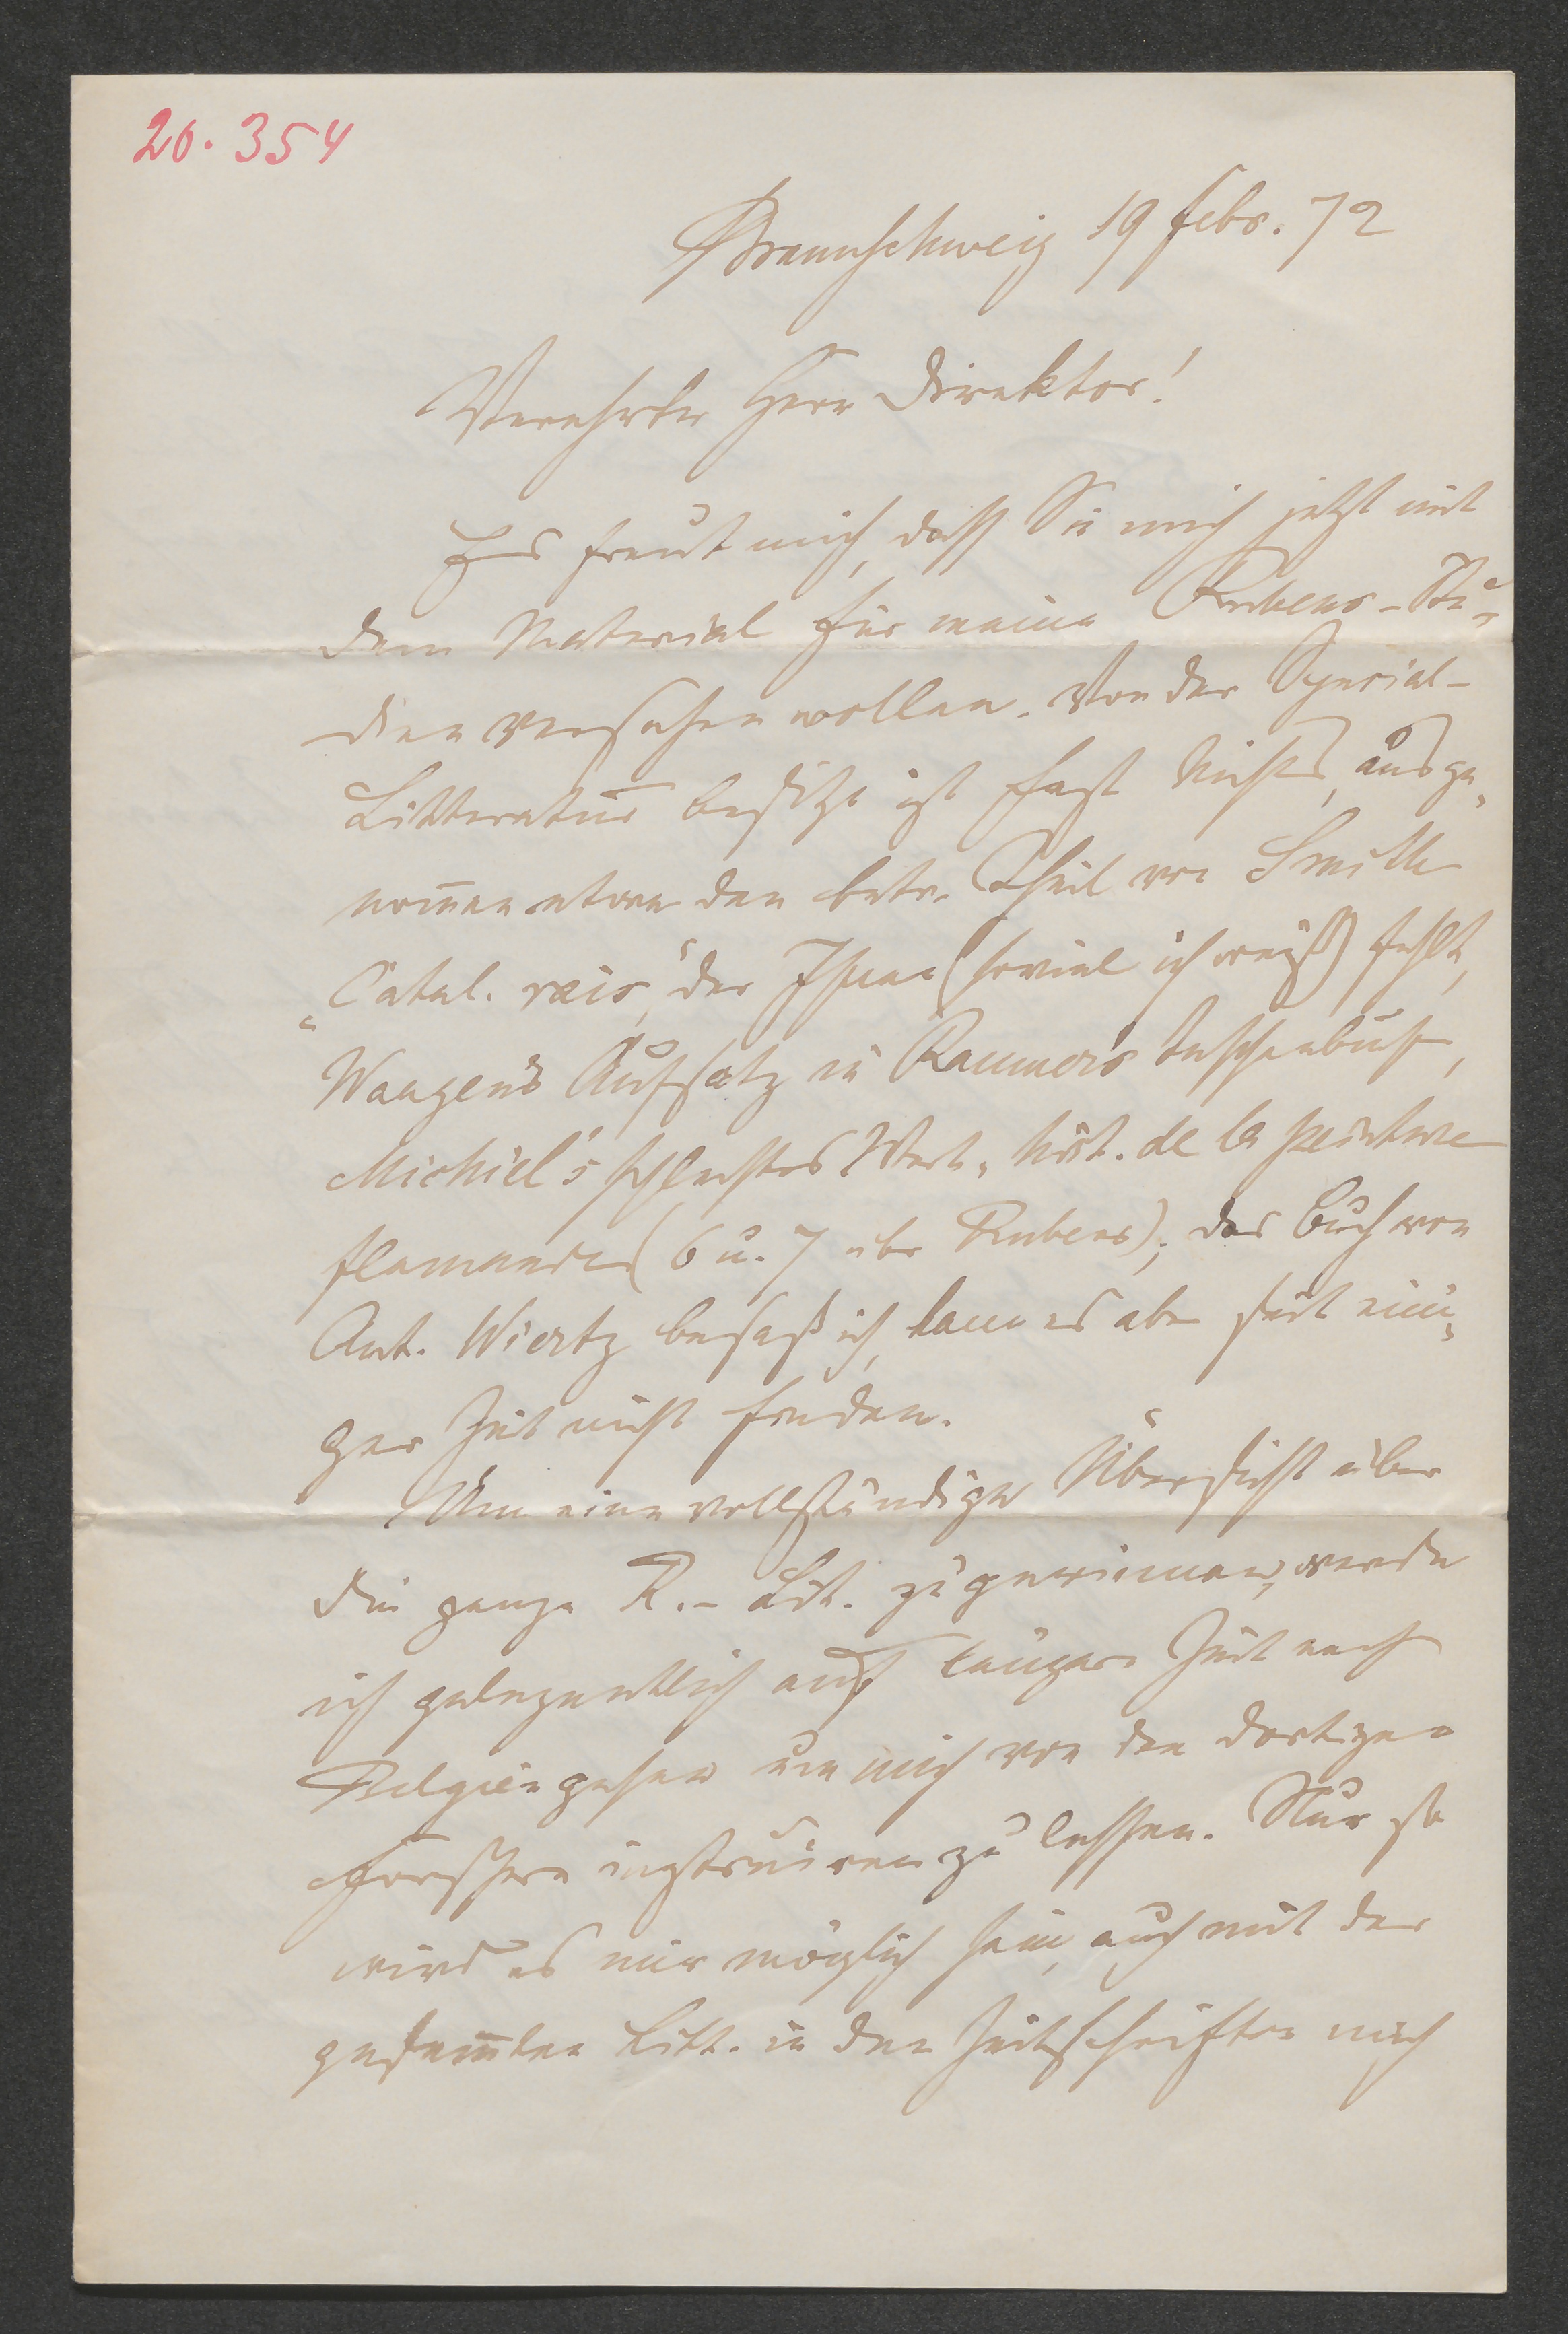 20. 354
Braunschweig 19 Febr. 72
Verehrter Herr Direktor!
Es freut mich, dass Sie mich jetzt mit
dem Material für meine Rubens-Stu-
dien versehen wollen. Von der Special-
Litteratur besitze ich fast Nichts, ausge-
nom̄en etwa den betr. Theil von Smith
„Catal. rais", der Ihnen (soviel ich weiß) fehlt,
Waagen's Aufsatz in Raumer's Taschenbuch,
Michiel's schlechtes Werk „hist. de la peinture
flamande (6 u. 7 über Rubens); das Buch von
Ant. Wiertz besaß ich, kann es aber seit eini-
ger Zeit nicht finden.
Um eine vollständige Übersicht über
die ganze R.- Lit. zu gewinnen, werde
ich gelegentlich auf längere Zeit nach
Belgien gehen um mich von den dortigen
Forschern instruiren zu lassen. Nur so
wird es mir möglich sein, auch mit der
gesam̄ten Litt. in den Zeitschriften mich